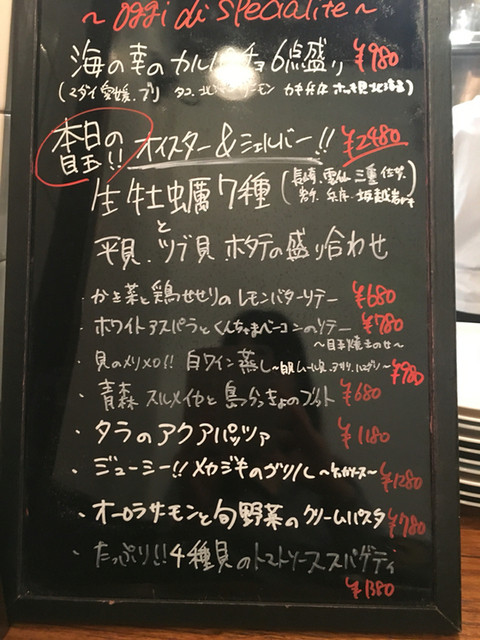 ~ oggi di specialite ~
海の幸のカルパッチョ6点盛り ¥980
(マダイ愛媛、ブリ タコ、サーモン カキ兵庫 ホッキ貝北海道)
本日の目玉!! オイスター&シェルバー!! ¥2480
生牡蠣7種 (長崎、雲仙、三重、佐賀、岩手、兵庫、坂越
と
平貝、ツブ貝 ホタテの盛り合わせ
・かき菜と鶏せせりのレモンバターソテー ¥680
・ホワイトアスパラとくんちゃまベーコンのソテー ¥780
~目玉焼きのせ~
・貝のメリメロ!! 白ワイン蒸し ~ムール貝、アサリ、ハマグリ~ ¥980
・青森スルメイカと島らっきょのフリット ¥680
・タラのアクアパッツァ ¥1180
・ジューシー!!メカジキのグリル ¥1280
・オーロラサーモンと旬野菜のクリームパスタ ¥780
・たっぷり!!4種貝のトマトソーススパゲティ
¥1380